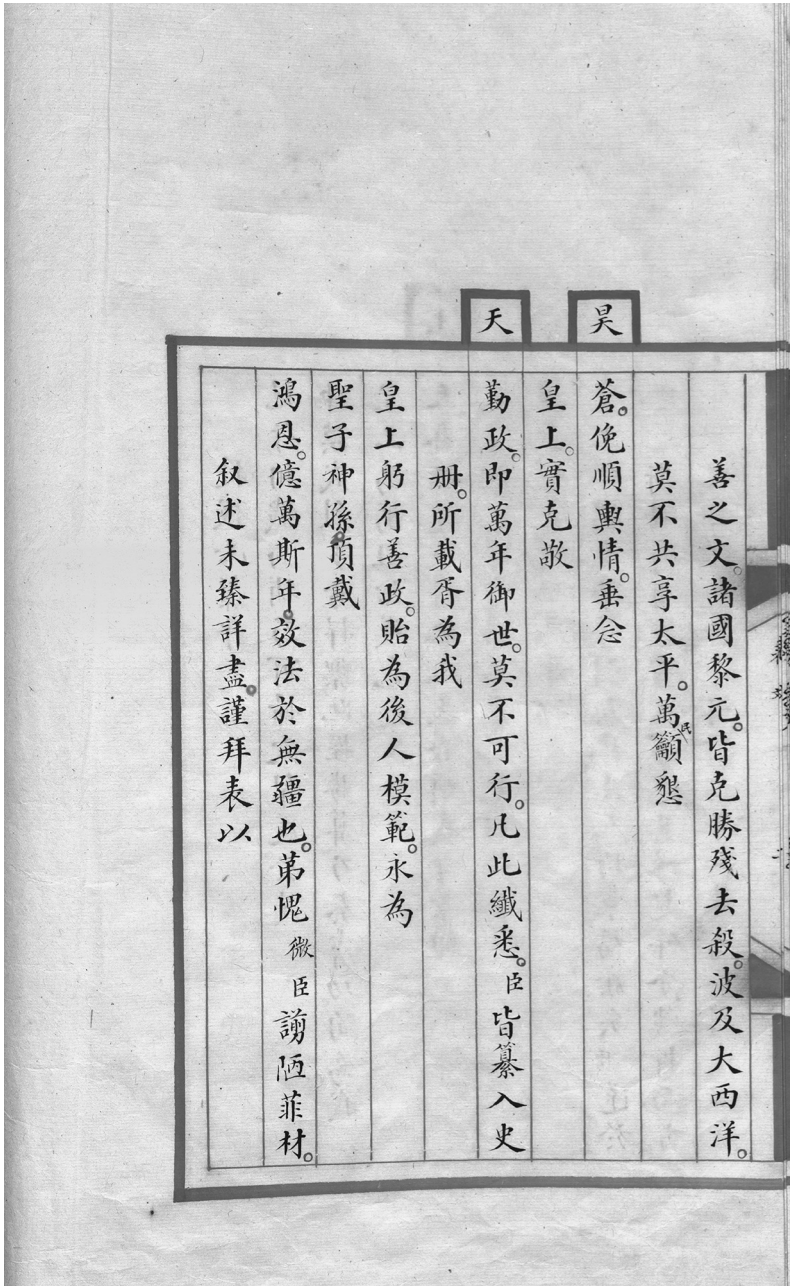 善之文。諸國黎元。皆克勝殘去殺。波及大西洋。
莫不共享太平。萬民籲懇
昊蒼。俛順輿情。垂念
皇上。實克敬
天勤政。即萬年御世。莫不可行。凡此纖悉。臣皆纂入史
册。所載胥為我
皇上躬行善政。貽為後人模範。永為
聖子神孫。頂戴
鴻恩。億萬斯年。效法於無疆也。苐愧微臣謭陋菲材。
叙述未臻詳盡。謹拜表以